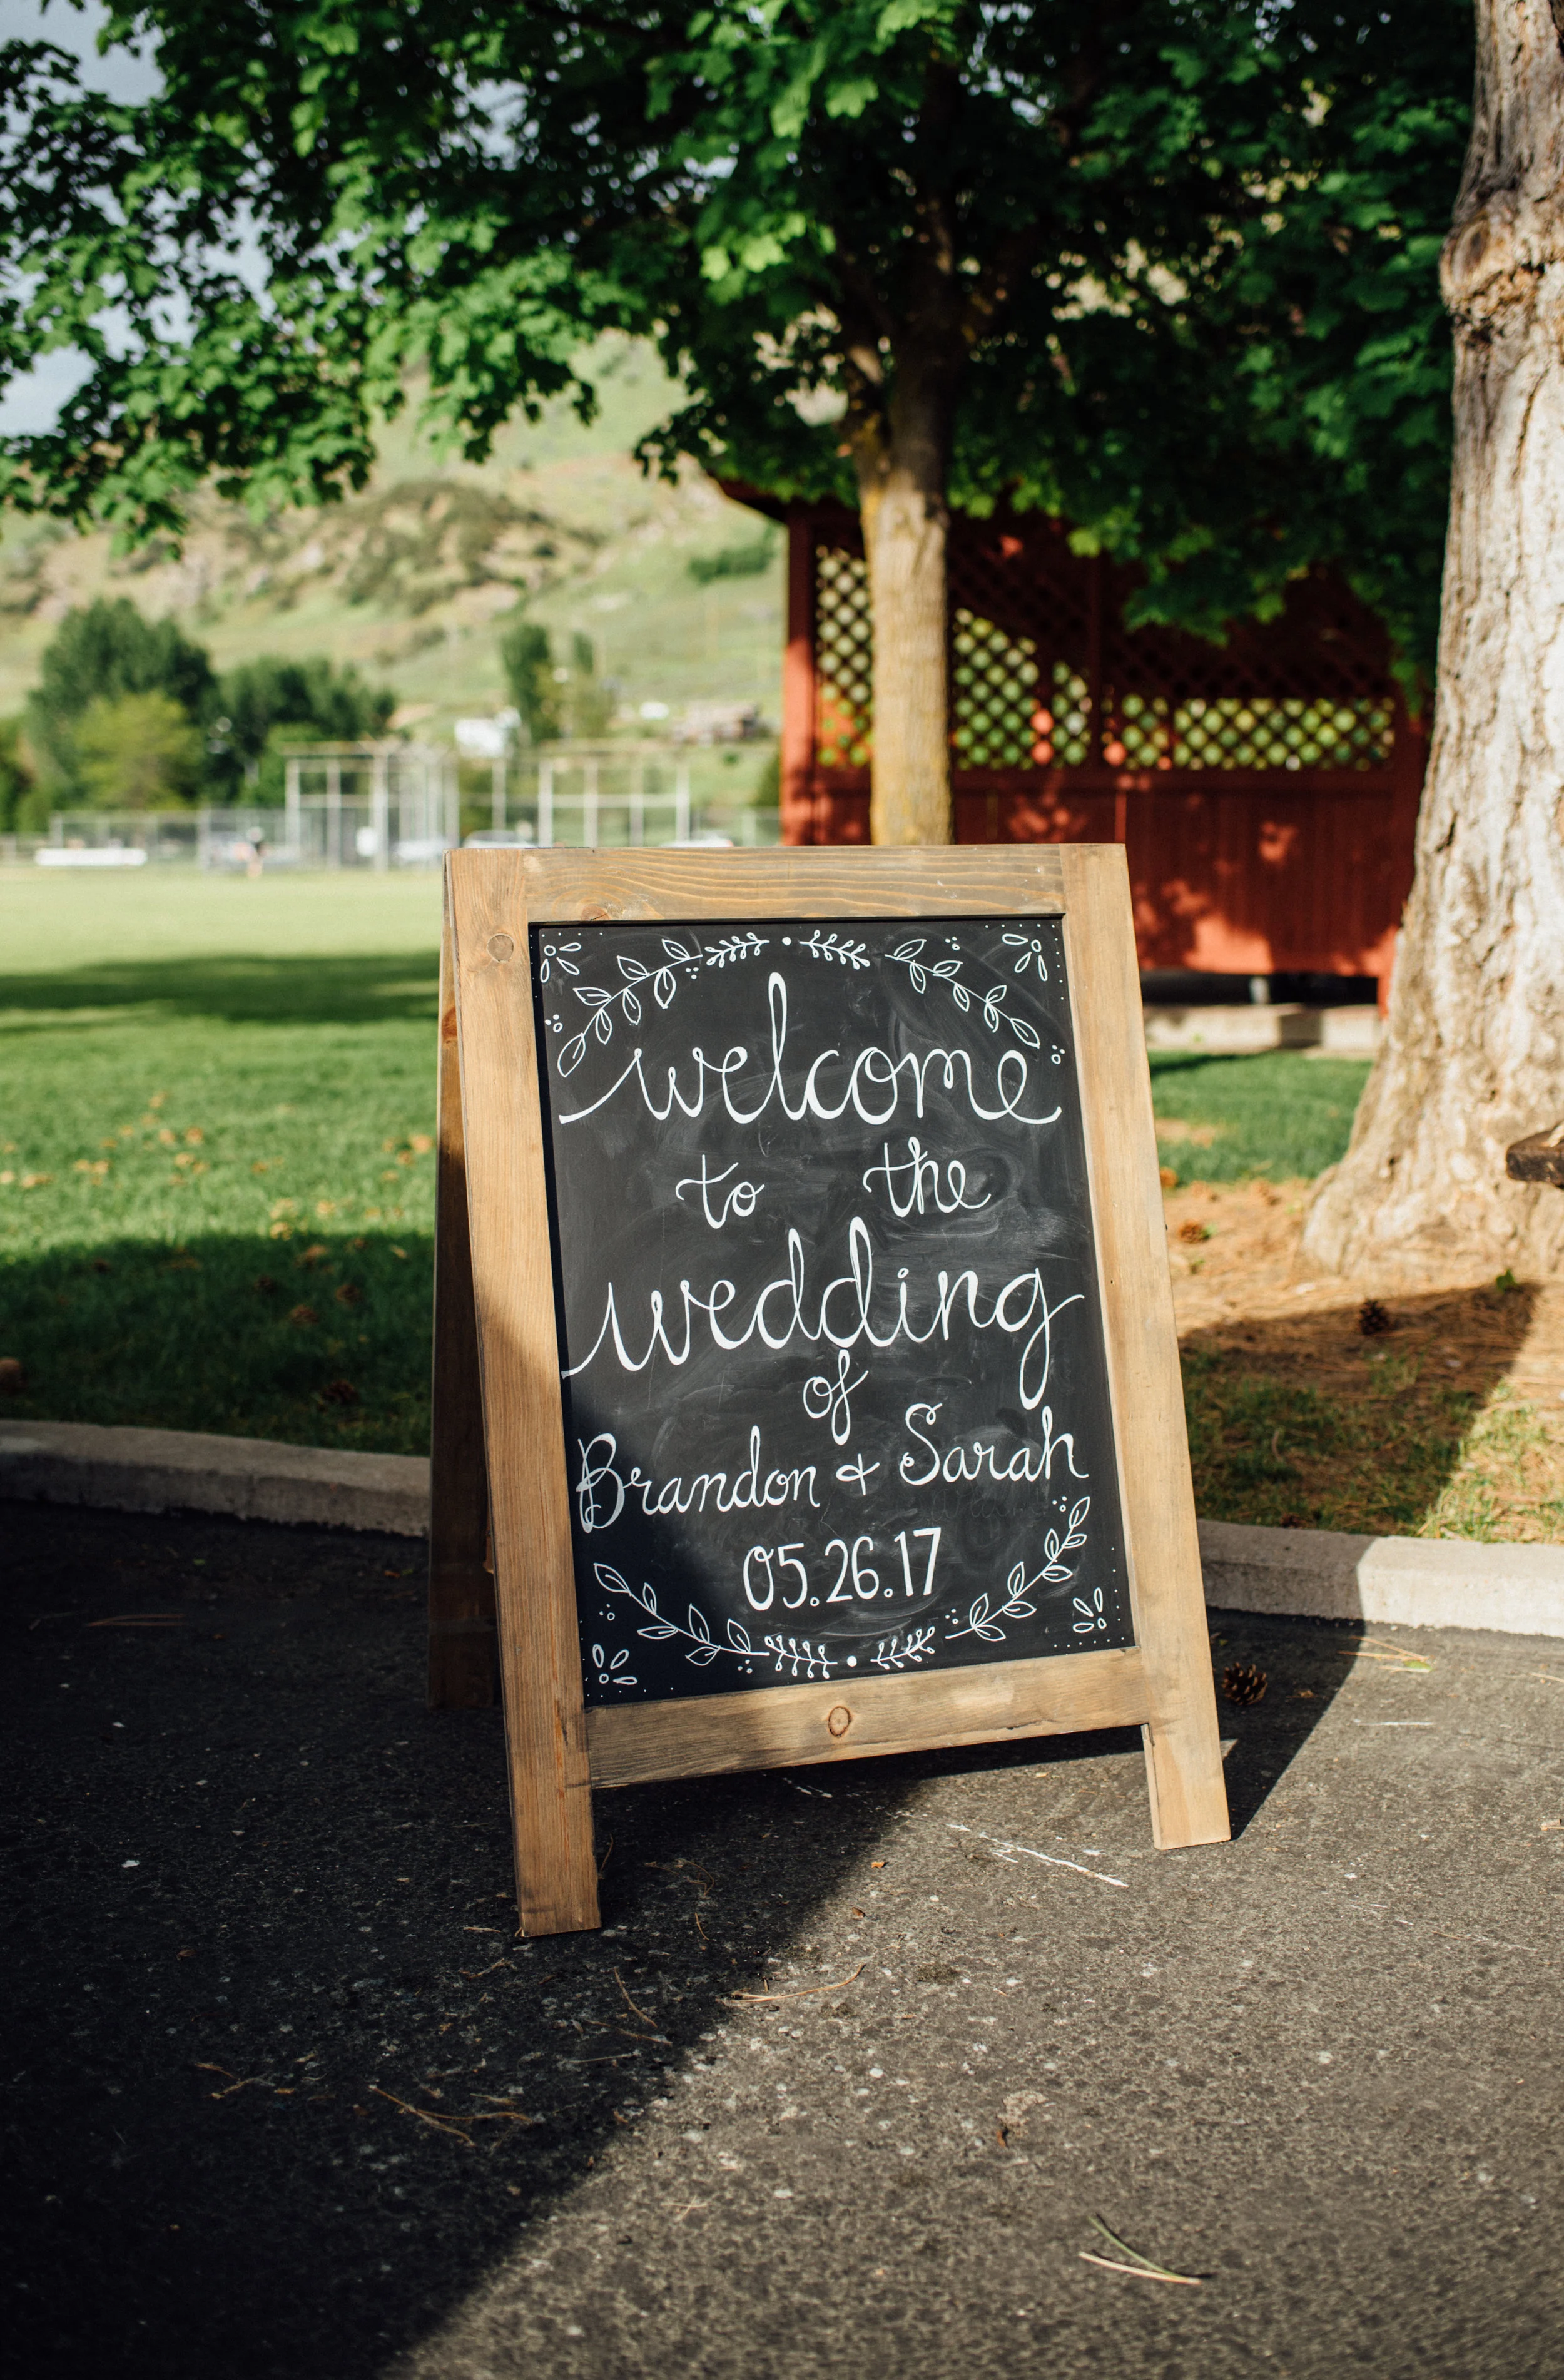 welcome
to the
wedding
of
Brandon + Sarah
05.26.17